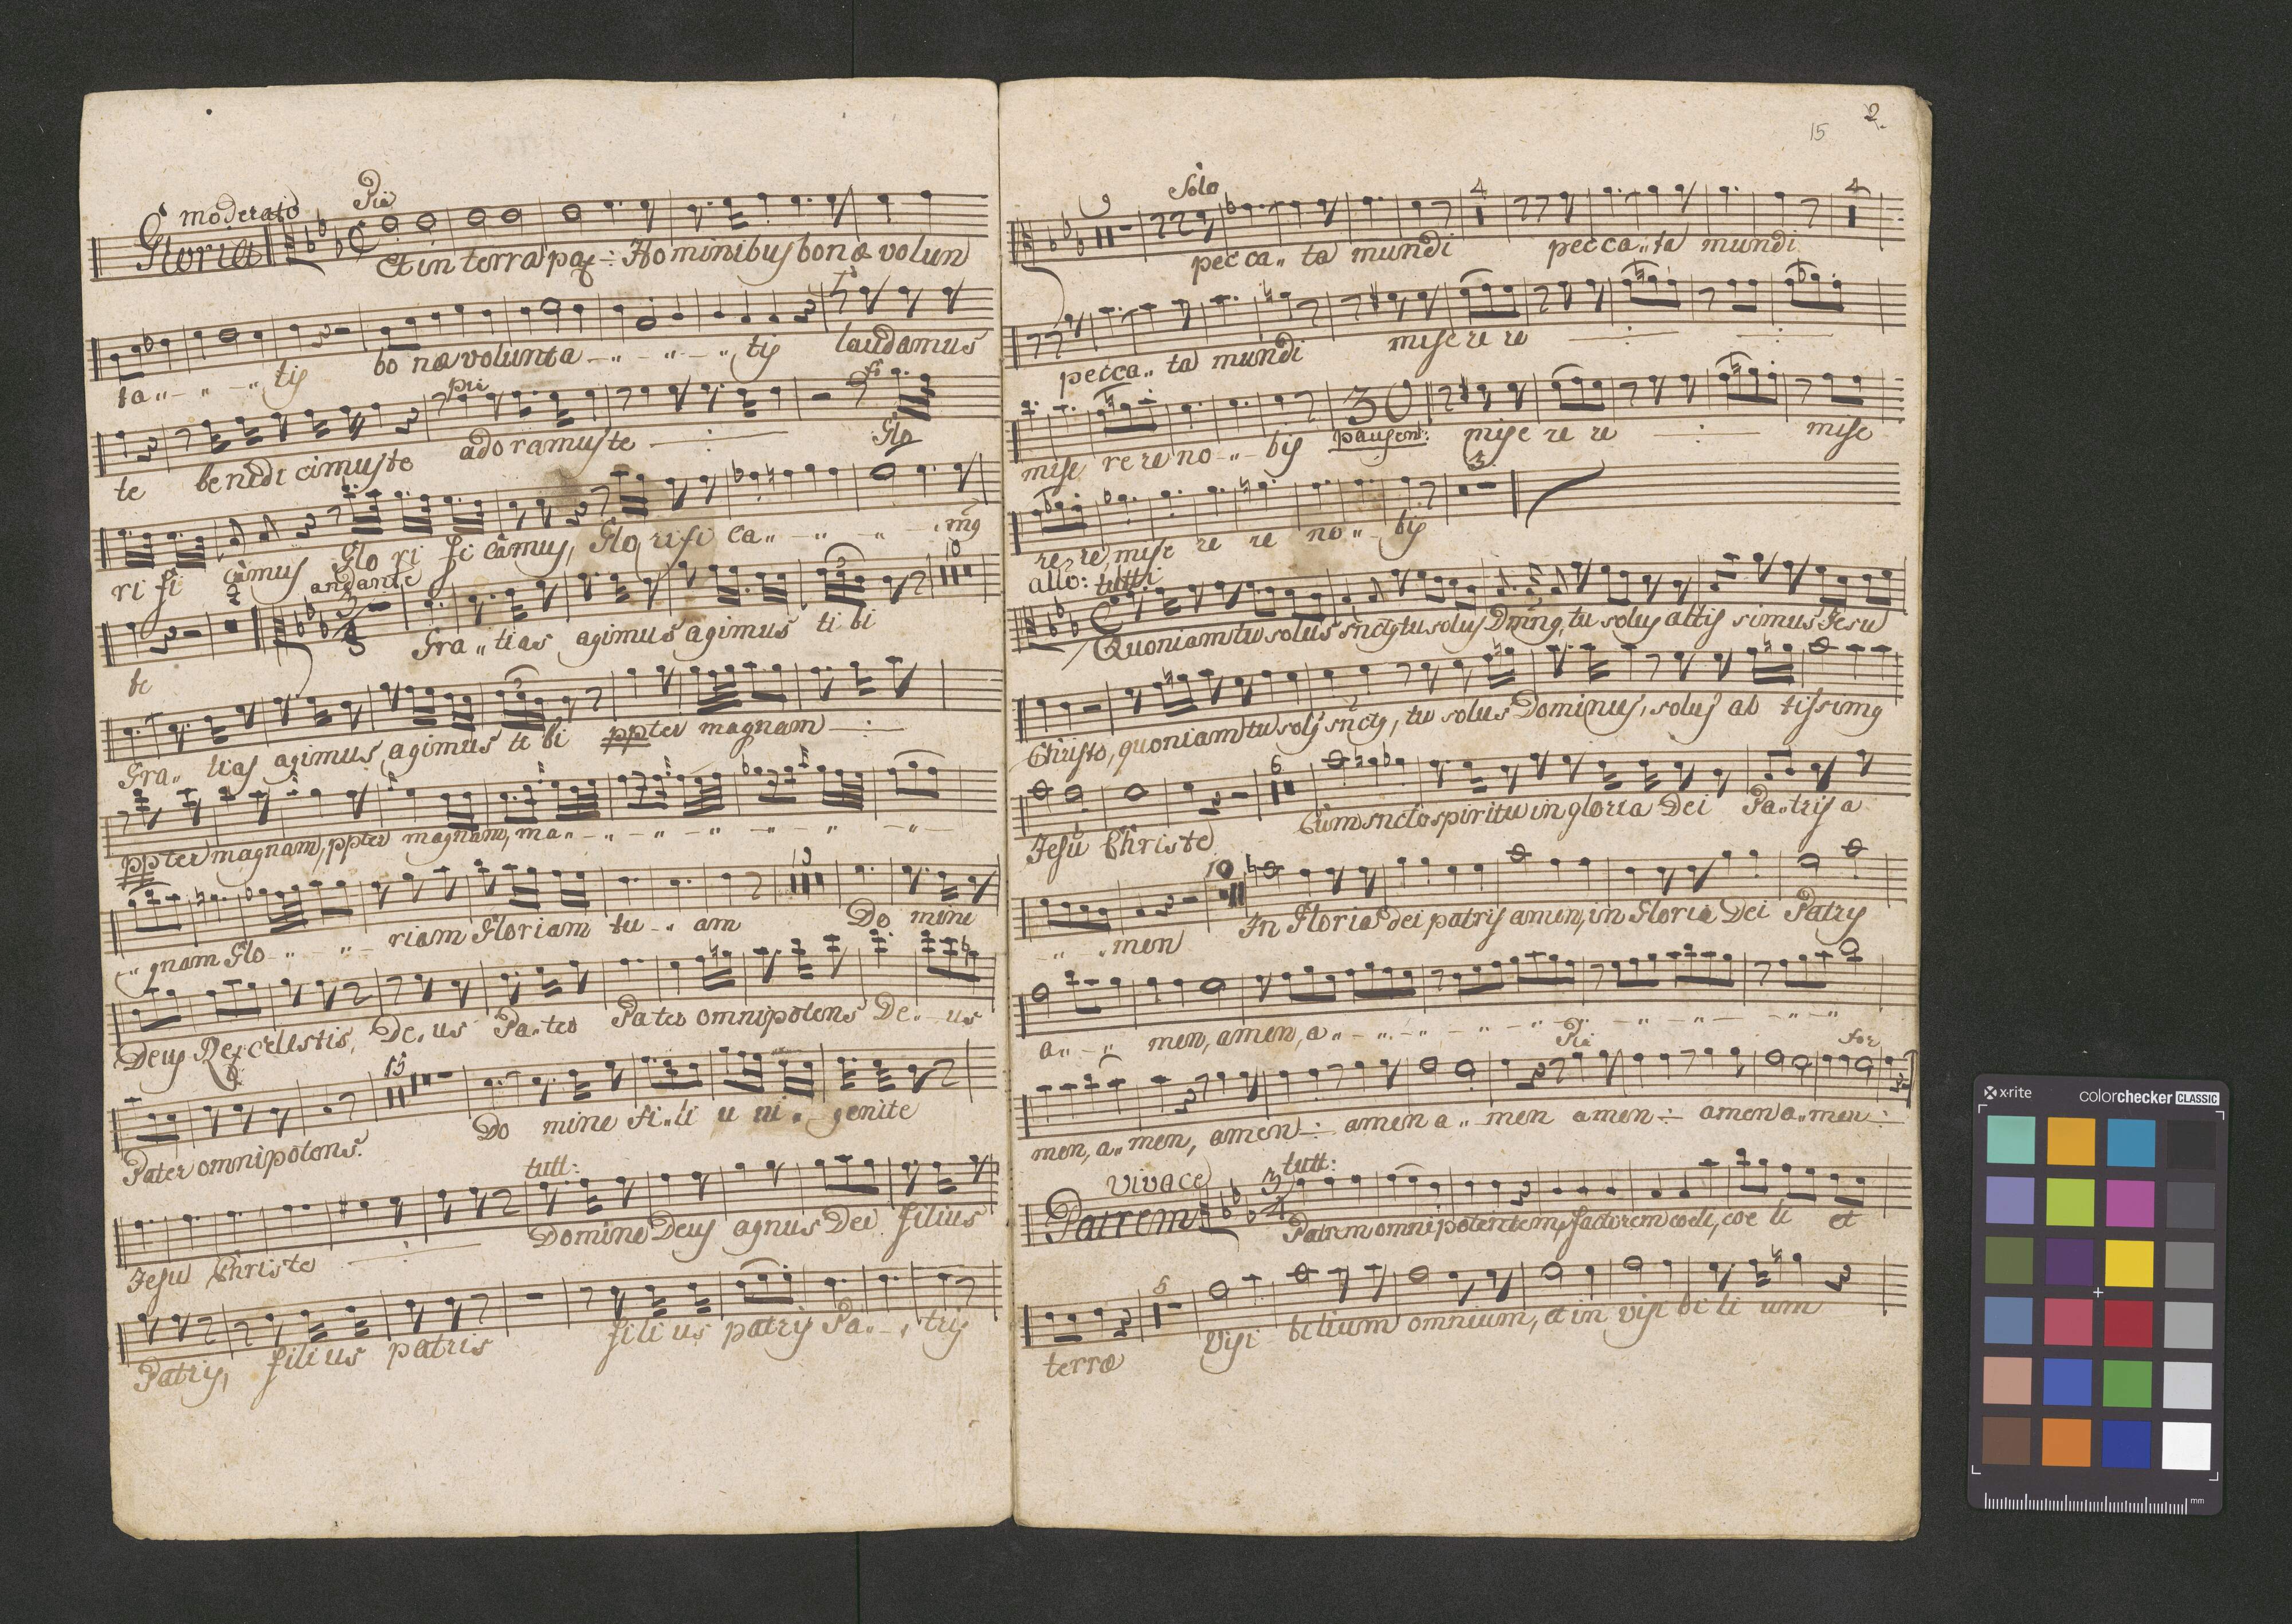 moderato
Pia
Gloria
Et in terra pax ÷ Hominibus bonæ volun
ta „ – „ – „ tis bo næ volunta – „ – „ – „ tis laudamus
pia
fo
te benedicimus te adoramus te – : – Glo
ri fi camus Glo ri fi camus, Glo rifi ca „ – „ – „ – mg
andante
te Gra „ tias agimus agimus ti bi
3
8
10
Gra „ tias agimus agimus ti bi ppter magnam – : –
ppter magnam, ppter magnam, ma „ – „ – „ – „ – „ – „ – „ –
13
„ gnam Glo – „ – „ – riam Gloriam tu – „ am Do mine
Deus Rex celestis, De „ us Pa „ ter Pater omnipotens De „ – us
15
Pater omnipotens. Do mine fi „ li u ni „ – genite
tutt:
Jesu Christe – : – Domine Deus agnus Dei filius
Patris, filius patris filius patris Pa „ – „ tris
15
2.
Solo
4
4
pecca „ ta mundi pecca „ ta mundi
pecca „ ta mundi misere re – : – – : –
30
mise re re no – „ – bis pausen: mise re re – : – mise
3
re re, mise re re no „ – bis
allo: tutti
Quoniam tu solus snctg tu solus Dming, tu solus altis simus Jesu
Christo, quoniam tu solg snctg, tu solus Dominus, solus al tissimg
6
Jesu Christe Cum sncto spiritu in gloria Dei Pa „ tris a
10
– „ – „ men In Gloria dei patris amen, in Gloria Dei Patris
a „ – „ men, amen, a „ – „ – „ – „ – „ – „ – „ – „ – „ – „
Pia
for
men, a „ men, amen ÷ amen a „ – men amen ÷ amen a „ men ÷
vivace
tutt:
3
4
Patrem
Patrem omnipotentem, factorem coeli, coe li et
5
terræ Visi bilium omnium, et in visi bi li um
x·rite
colorchecker CLASSIC
mm